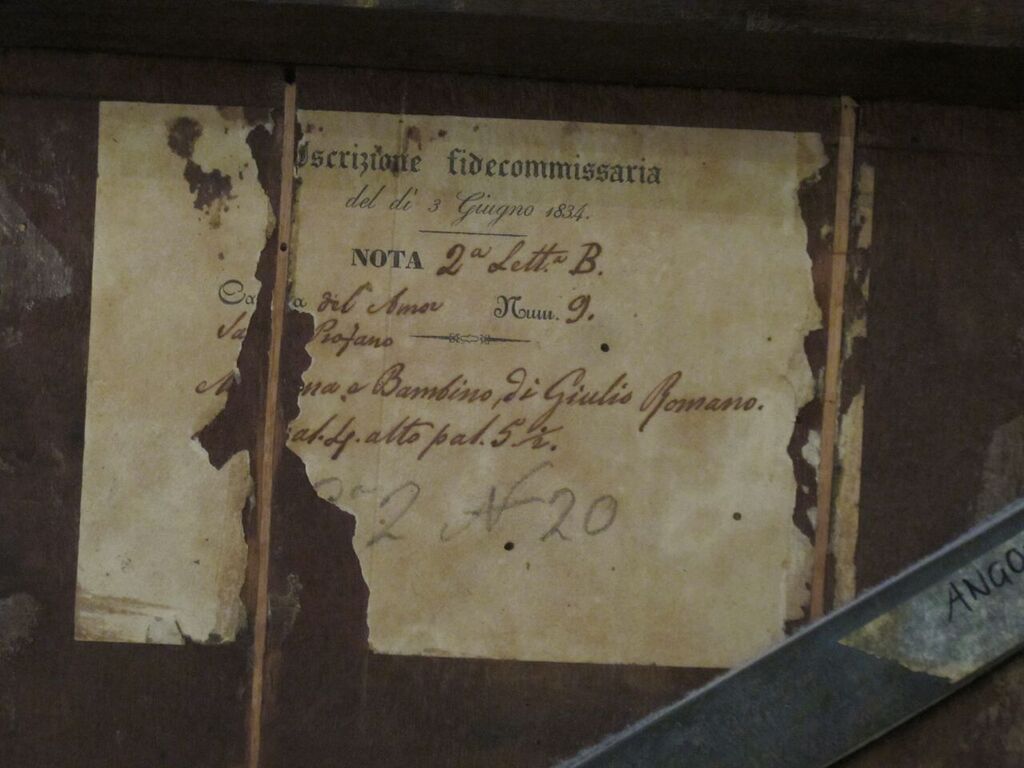 Iscrizione fidecommissaria
del dì 3 Giugno 1834.
NOTA 2ª Lett.ª B.
Ca a del Amor Num. 9.
Sa Profano
M na e Bambino, di Giulio Romano.
al. 4. alto pal. 5 ½.
2 N 20
ANGO